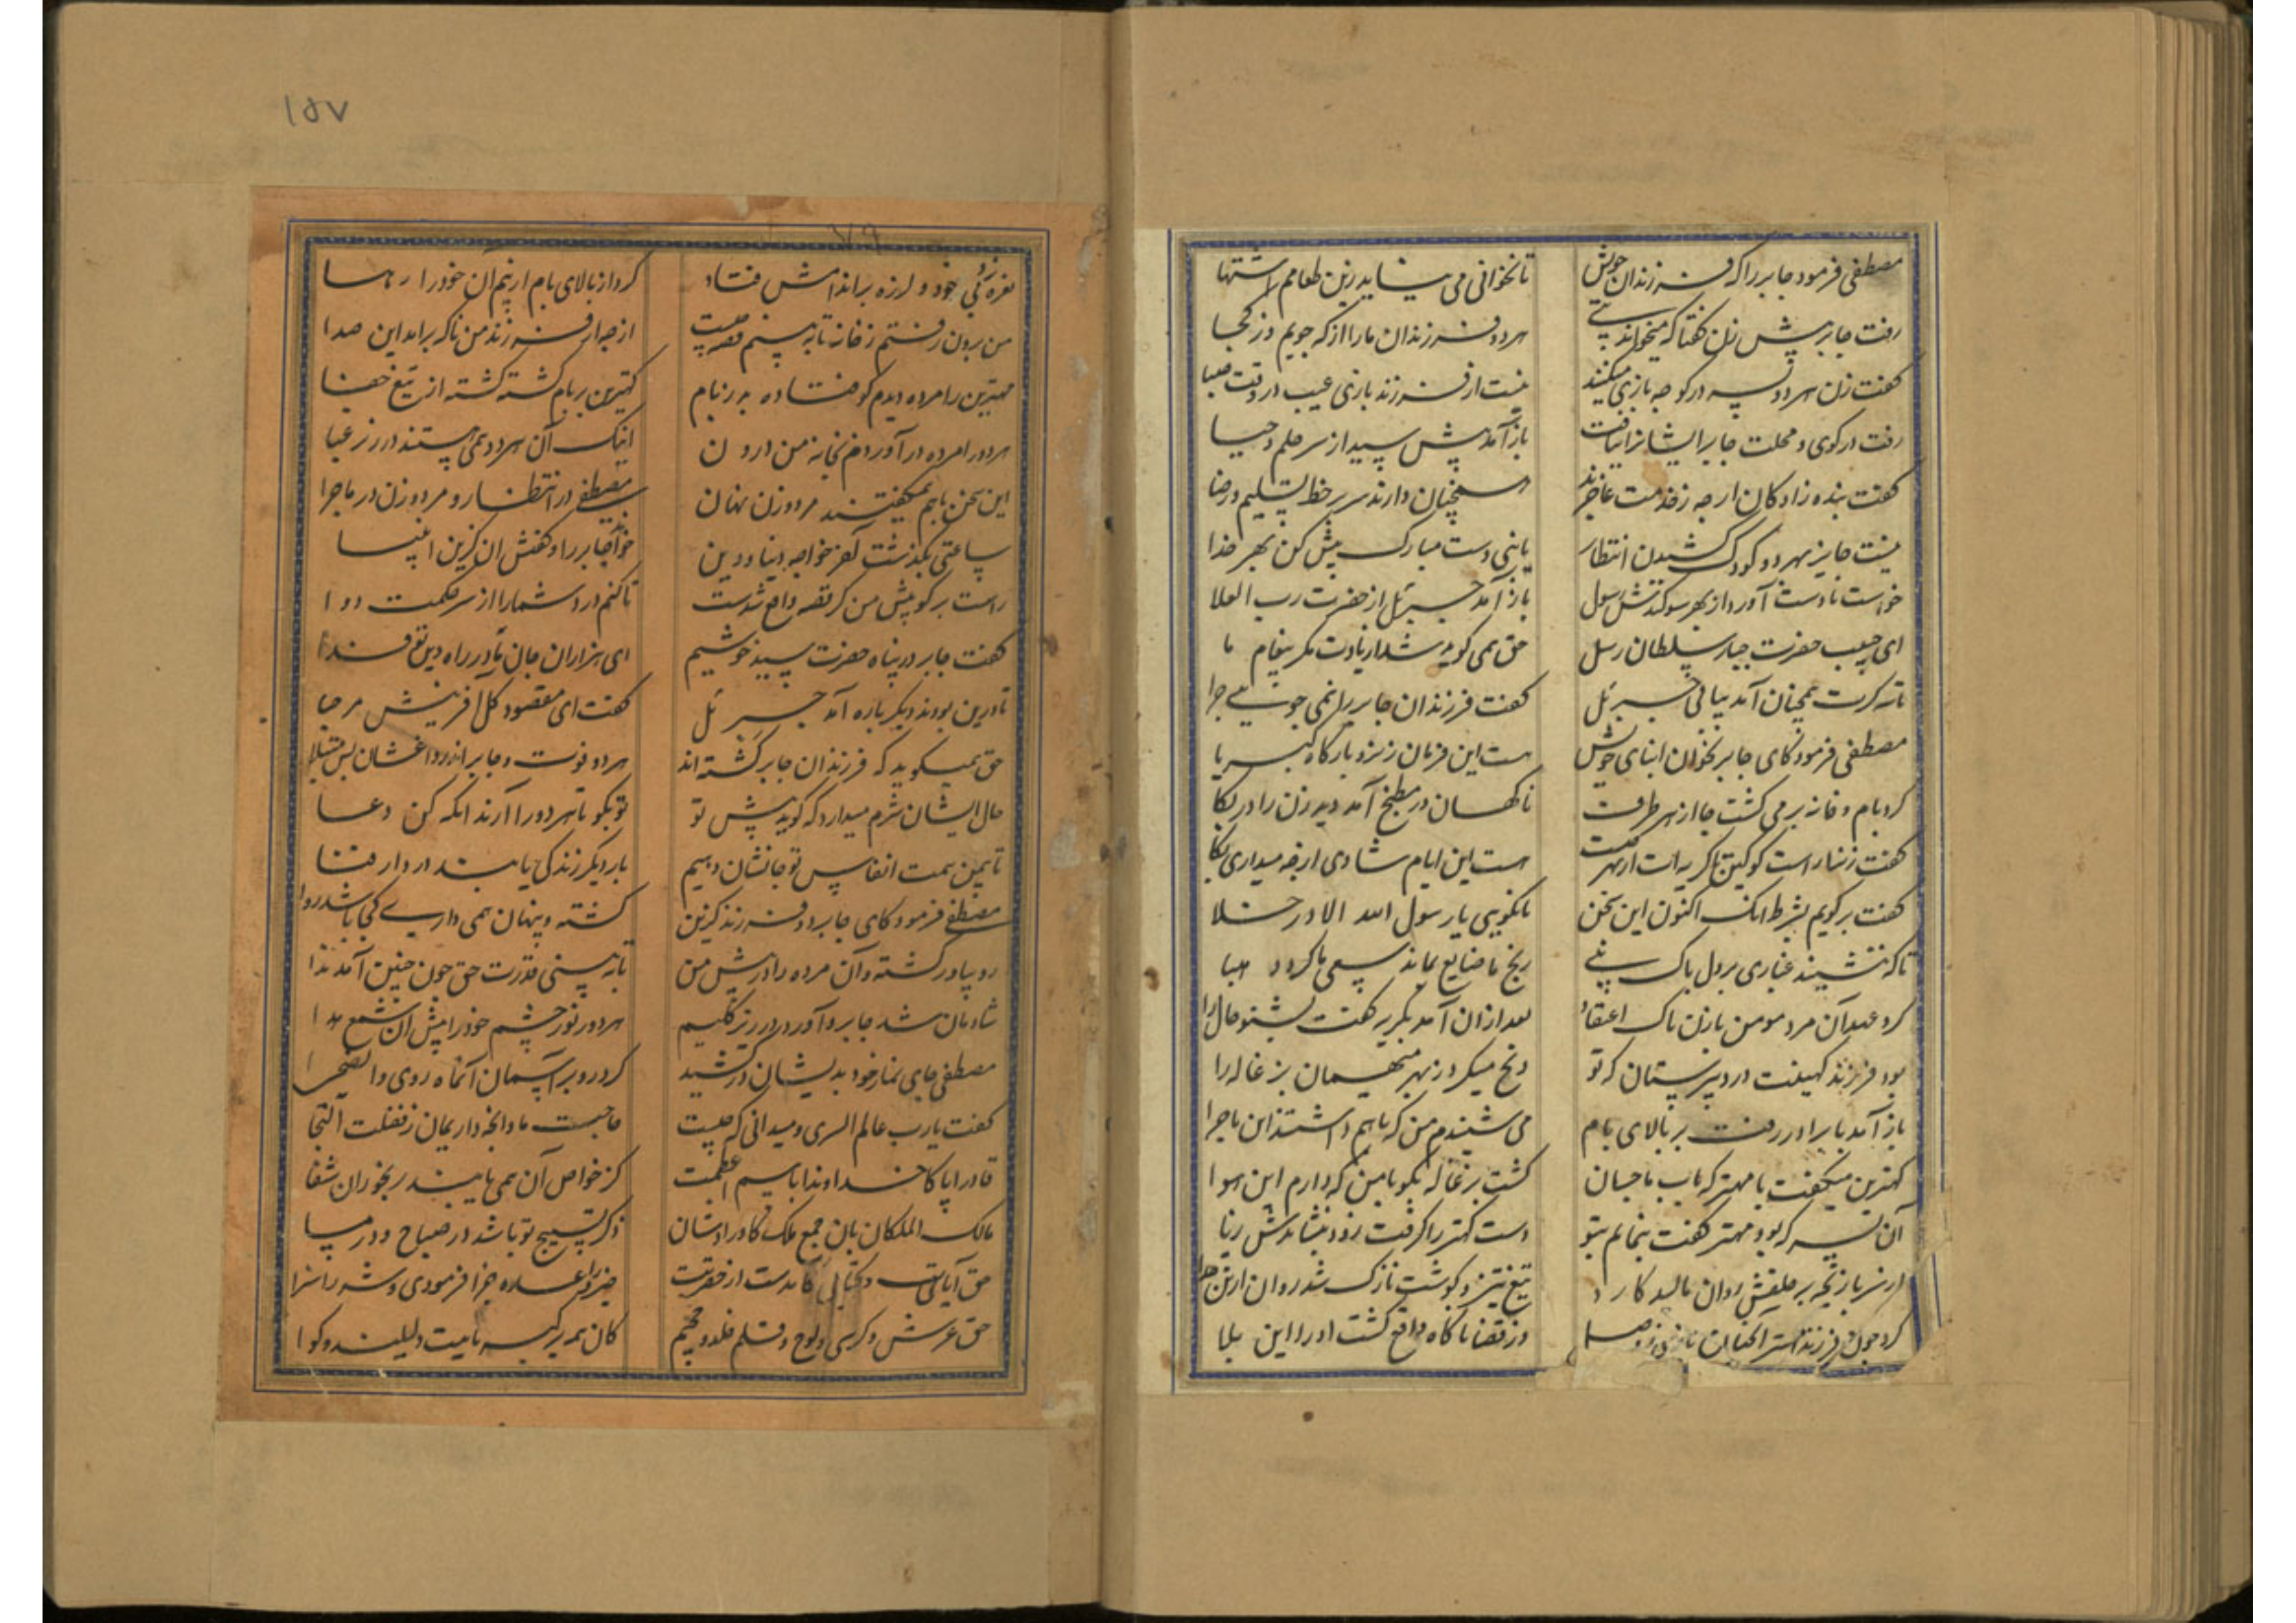 مصطفی فرمود جابر را که فرزندان خویش
تا نخوانی می نشاید زین طعامم اشتها
رفت جابر پیش زن گفتا که میخواند نبی
هر دو فرزندان ما را از که جویم وز کجا
گفت زن هر دو پسر در کوچه بازی میکنند
نیست از فرزند بازی عیب در وقت صبا
رفت در کوی و محلت جابر ایشانرا نیافت
باز آمد پیش سید از سر حلم و حیا
گفت بنده زادکان ار چه ز خدمت عاجزند
همچنان دارند سر بر خط تسلیم و رضا
نیست جایز بهر دو کودک کشیدن انتظار
یا نبی دست مبارک پیش کن بهر خدا
خواست تا دست آورد از بهر سوکندش رسول
باز آمد جبرئیل از حضرت رب العلا
ای حبیب حضرت جبار سلطان رسل
حق همی گوید
تا سه کرت همچنان آمد بیاپی جبرئیل
گفت فرزندان جابر را نمی جویی چرا
مصطفی فرمود کای جابر بخوان ابنای خویش
هست این فرمان ز نزد بارگاه کبریا
کرد بام و خانه برمی گشت جابر هر طرف
ناگهان در مطبخ آمد دید زن را در بکا
گفت زن را راست گو کین گریه ات از بهر کیست
هست این ایام شادی از چه میداری بکا
گفت برگویم بشرط آنک اکنون این سخن
تا نگویی با رسول الله الا در خلا
تا که ننشیند غباری بر دل پاک نبی
رنج ما ضایع نماند سعی ما گردد هبا
کرد عهد آن مرد مومن با زن پاک اعتقاد
بعد از آن آمد بگریه گفت بشنو حال را
بود فرزند کهینت در دبیرستان که تو
ذبح میکردی ز بهر میهمان بزغاله را
باز آمد با برادر رفت بر بالای بام
می شنیدم من که با هم داشتند این ماجرا
کهترین میگفت با مهتر که باب ما چسان
کشت بزغاله بگو با من که دارم این هوا
آن پسر که بود مهتر گفت بنمایم بتو
دست کهتر را گرفت زود بنشاندش
از سر بازیچه بر حلقش روان مالید کارد
تیغ تیز و گوشت نازک شد روان از تن جدا
کرد چون فرزند
وز قضا ناگاه واقع گشت او را این بلا
نعره زد بی خود و لرزه بر اندامش فتاد
کرد از بالای بام از بیم آن خود را رها
من برون رفتم ز خانه تا ببینم قصه چیست
از چه از فرزند من ناگه براید این صدا
مهترین را مرده دیدم کو فتاده بد ز بام
کهترین بر بام گشته کشته از تیغ جفا
هر دو را مرده در آوردم بخانه من درون
اینک آن هر دو همی هستند در زیر عبا
این سخن با هم همیگفتند مرد و زن نهان
مصطفی در انتظار و مرد و زن در ماجرا
ساعتی بگذشت آنکه خواجه دنیا و دین
خواند جابر را و گفتش آن گزین انبیا
راست برگو پیش من گر قصه واقع شدست
تا کنم درد شما را از سر حکمت دوا
گفت جابر در پناه حضرت سید خوشیم
ای هزاران جان ما در راه دین تو فدا
تا درین بودند دیگر باره آمد جبرئیل
گفت ای مقصود کل آفرینش مرحبا
حق همیگوید که فرزندان جابر کشته اند
هر دو فوت و جابر اندر داغشان بس مبتلا
حال ایشان شرم میدارد که گوید پیش تو
تو بگو تا هر دو را آرند آنگه کن دعا
تا بیمن همت انفاس تو جانشان دهیم
بار دیگر زندگی یابند در دار فنا
مصطفی فرمود کای جابر دو فرزند گزین
کشته و پنهان همی داری کجا باشد روا
رو بیاور کشته و آن مرده را در پیش من
تا ببینی قدرت حق چون چنین آمد ندا
شادمان شد جابر و آورد در زیر گلیم
هر دو نور چشم خود را پیش آن شمع هدا
مصطفی جای نماز خود بدیشان درکشید
کرد رو بر آسمان آن ماه روی والضحی
گفت یا رب عالم السری و میدانی که چیست
حاجت ما و آنچه داریمان ز فضلت التجا
قادرا پاکا خداوندا باسم اعظمت
کز خواص آن همی یابند رنجوران شفا
مالک الملکان بان جمع ملک کاورادشان
ذکر تسبیح تو باشد در صباح و در مسا
حق آیات و کتابی کآمدست از حضرتت
حق عرش و کرسی و لوح و قلم خلد و جحیم